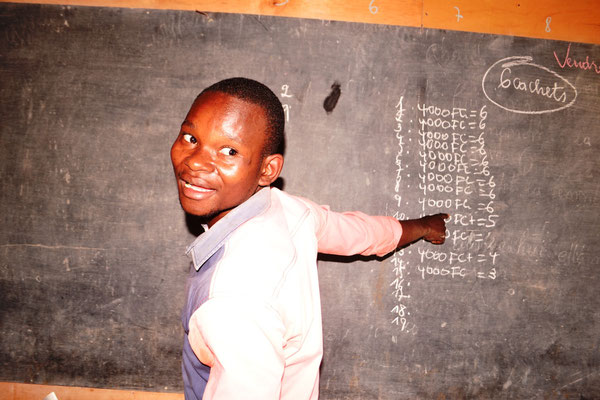 6 7 8
Vendre
6 cachets
2
1. 4000FC = 6
2. 4000FC = 6
3. 4000FC = 6
4. 4000FC = 6
5. 4000FC = 6
6. 4000FC = 6
7. 4000FC = 6
8. 4000FC = 6
9. 4000FC = 6
10. FC+ = 5
FC+ =
4000FC+ = 4
4000FC = 3
18.
19.